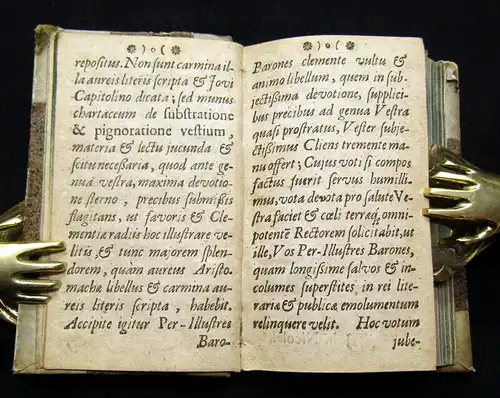 )o(
repositus. Non sunt carmina il-
la aureis literis scripta & Jovi
Capitolino dicata; sed munus
chartaceum de substratione
& pignoratione vestium,
materia & lectu jucunda &
scitu necessaria, quod ante ge-
nua vestra, maxima devotio-
ne sterno, precibus submissis
flagitans, ut favoris & Cle-
mentiæ radiis hoc illustrare ve-
litis, & tunc majorem splen-
dorem, quàm aureus Aristo-
machæ libellus & carmina au-
reis literis scripta, habebit.
Accipite igitur Per-Illustres
Baro-
)o(
Barones clemente vultu &
animo libellum, quem in sub-
jectissima devotione, supplici-
bus precibus ad genua Vestra
quasi prostratus, Vester subje-
ctissimus Cliens tremente ma-
nu offert; Cujus voti si compos
factus fuerit servus humilli-
mus, vota devota pro salute Ve-
stra faciet & cœli terræq; omni-
potentē Rectorem solicitabit, ut
ille, Vos Per-Illustres Barones,
quam longissime salvos & in-
columes superstites, in rei lite-
rariæ & publicæ emolumentum
relinquere velit. Hoc votum
jube-